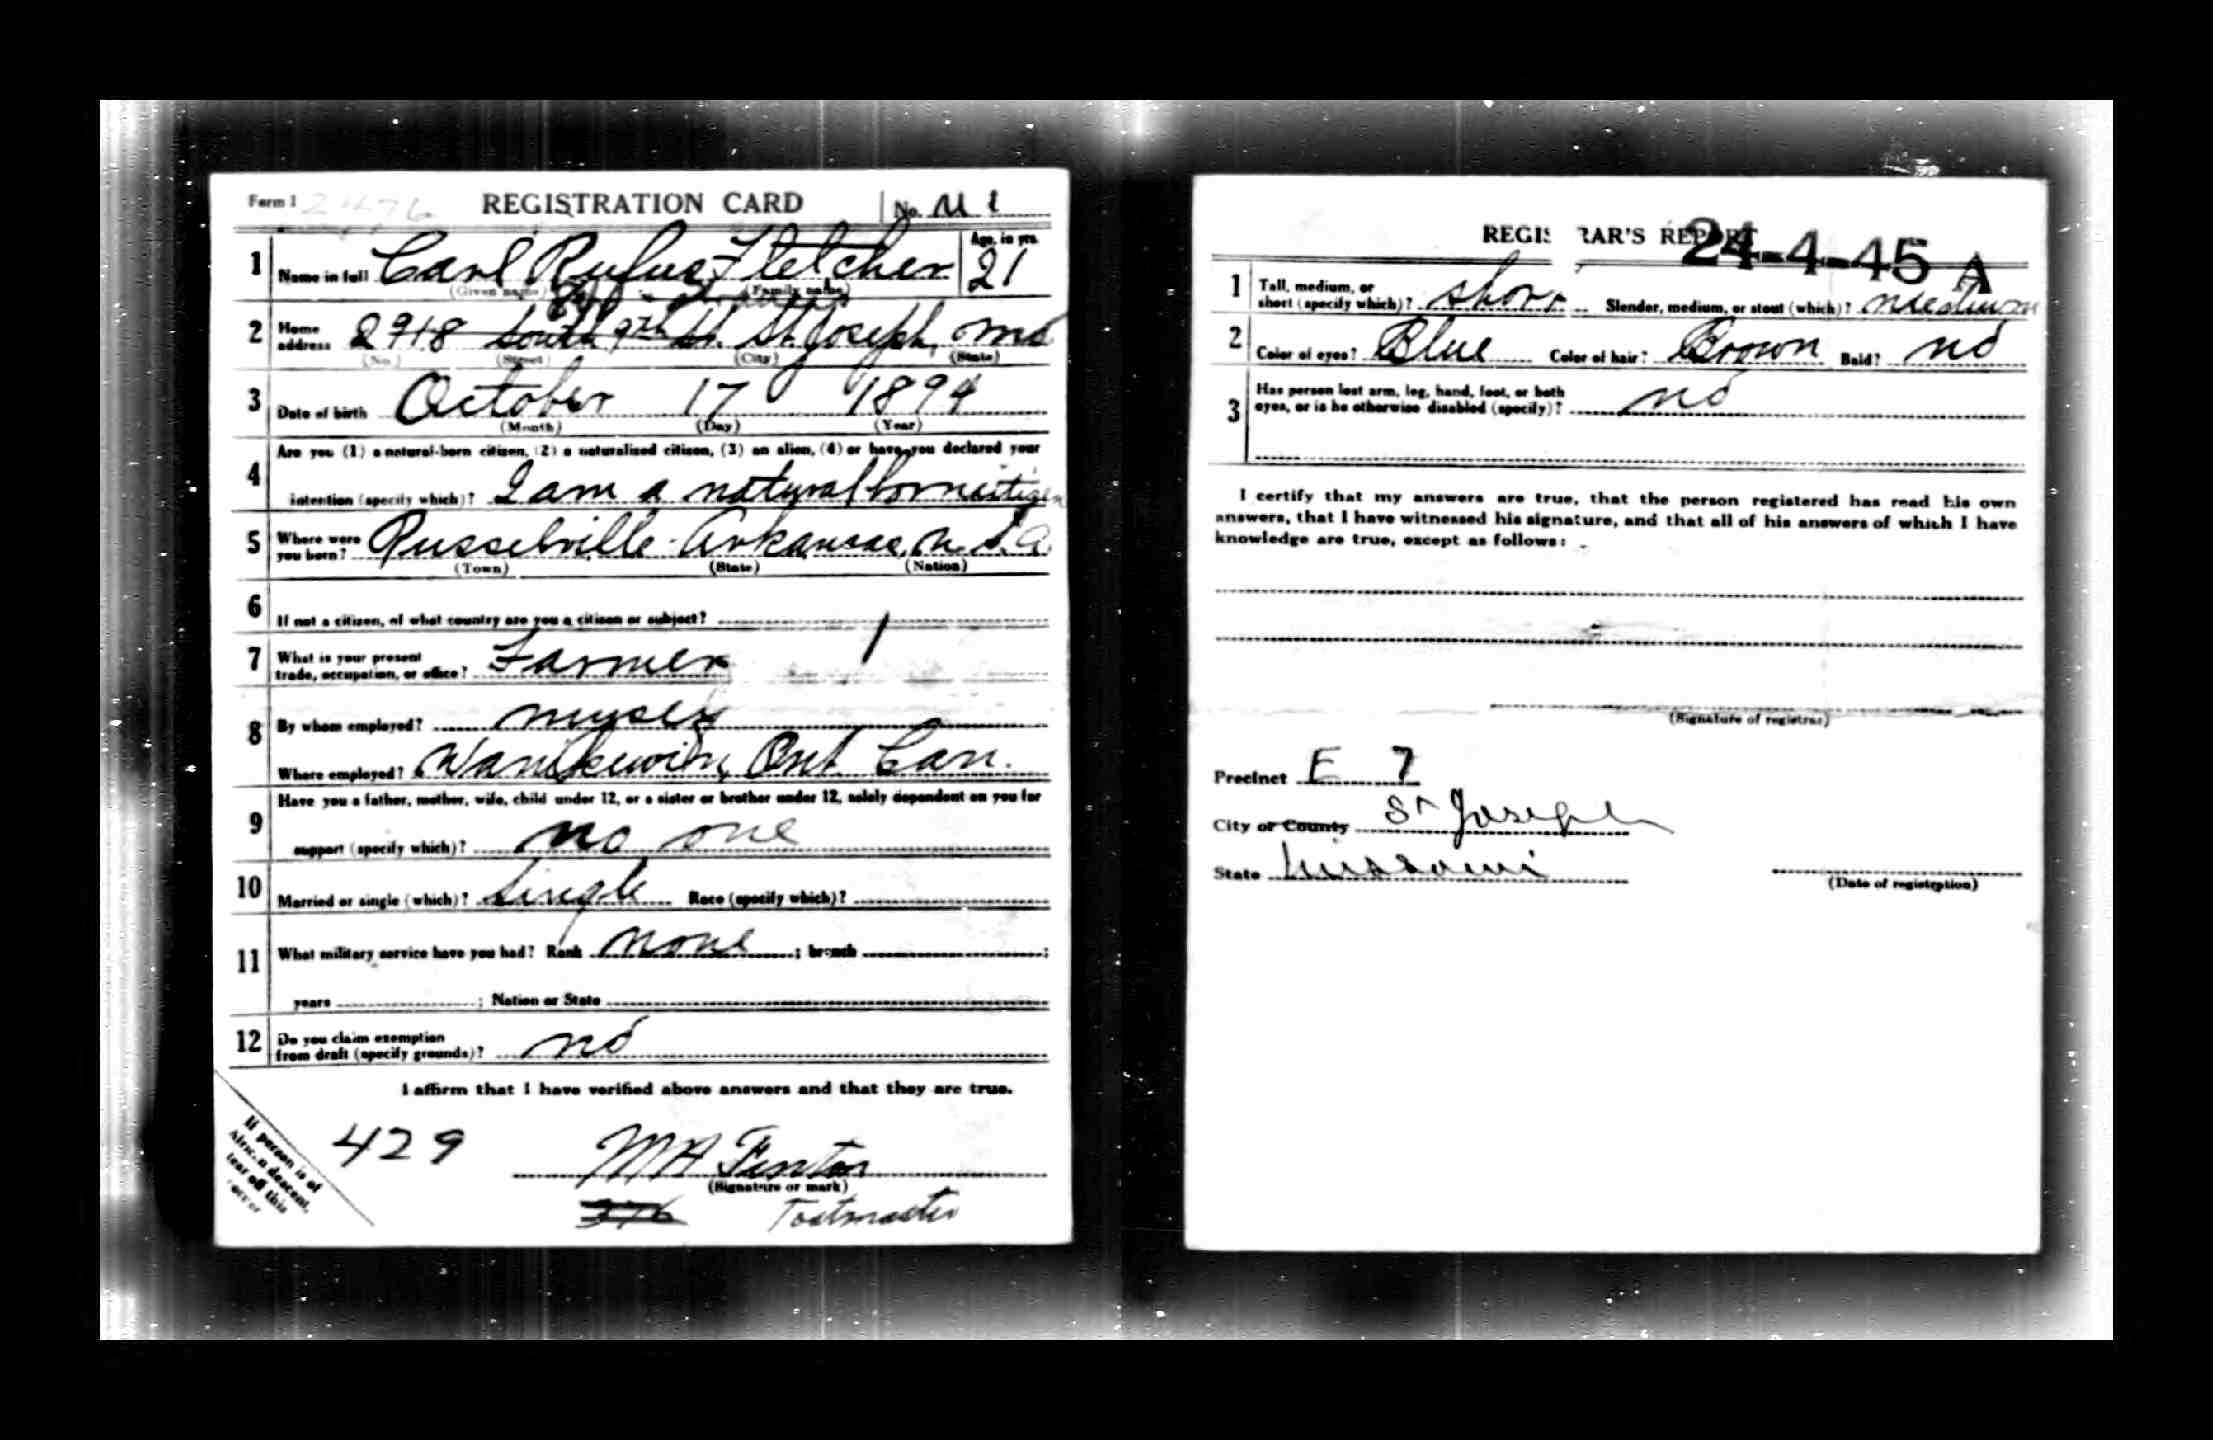 Form 1 REGISTRATION CARD No.
1 Name in full Carl Rufus Fletcher Age, in yrs. 21
(Given name) (Family name)
2 Home address 2918 South 9th St. St Joseph, Mo
(No.) (Street) (City) (State)
3 Date of birth October 17 1894
(Month) (Day) (Year)
4 Are you (1) a natural-born citizen, (2) a naturalized citizen, (3) an alien, (4) or have you declared your
intention (specify which)? I am a natural born citizen
5 Where were you born? Russelville Arkansas, U.S.A.
(Town) (State) (Nation)
6 If not a citizen, of what country are you a citizen or subject?
7 What is your present
trade, occupation, or office? Farmer
8 By whom employed? myself
Where employed? Ont. Can.
9 Have you a father, mother, wife, child under 12, or a sister or brother under 12, solely dependent on you for
support (specify which)? no one
10 Married or single (which)? Single Race (specify which)?
11 What military service have you had? Rank None ; branch ;
years ; Nation or State
12 Do you claim exemption
from draft (specify grounds)? no
I affirm that I have verified above answers and that they are true.
If person is of
African descent,
tear off this
corner
429
M H Fenton
(Signature or mark)
376 Postmaster
REGISTRAR'S REPORT
24-4-45 A
1 Tall, medium, or
short (specify which)? short Slender, medium, or stout (which)? medium
2 Color of eyes? Blue Color of hair? Brown Bald? no
3 Has person lost arm, leg, hand, foot, or both
eyes, or is he otherwise disabled (specify)? no
I certify that my answers are true, that the person registered has read his own
answers, that I have witnessed his signature, and that all of his answers of which I have
knowledge are true, except as follows:
(Signature of registrar)
Precinct E 7
City or County St Joseph
State Missouri
(Date of registration)